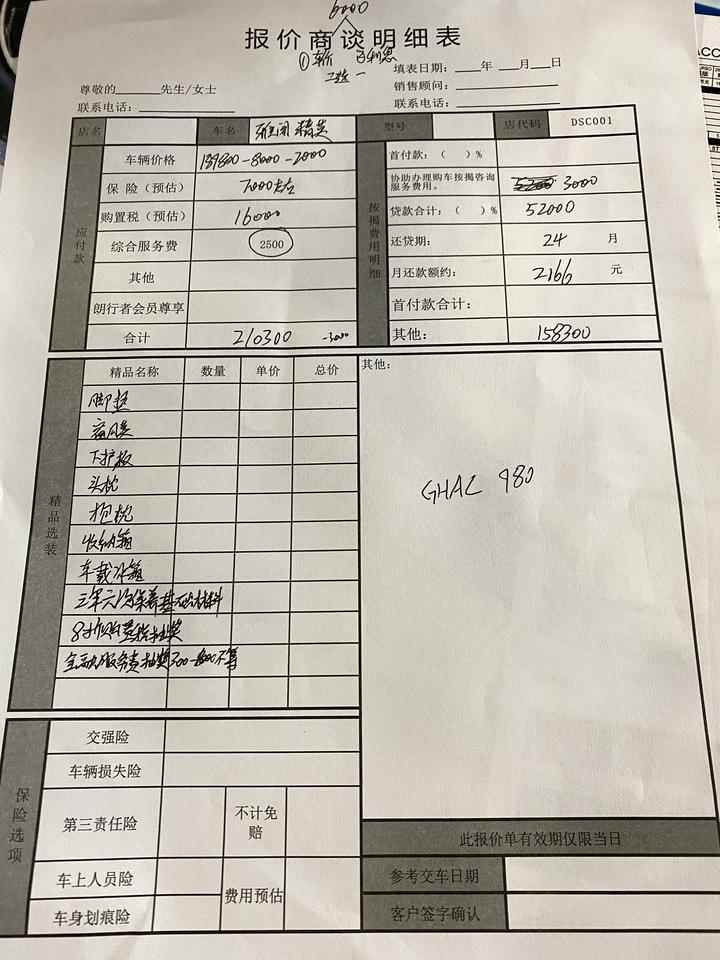 6000
报价商谈明细表
填表日期：____年____月____日
尊敬的______先生/女士
销售顾问：
联系电话：
联系电话：
店名 车名 雅阁 精英 型号 店代码 DSC001
应付款
车辆价格 189800-8000-2000
保险（预估） 7000左右
购置税（预估） 16000
综合服务费 2500
其他
朗行者会员尊享
合计 210300 -3000
按揭费用明细
首付款：（ ）%
协助办理购车按揭咨询服务费用。 5200 3000
贷款合计：（ ）% 52000
还贷期： 24 月
月还款额约： 2166 元
首付款合计：
其他： 158300
精品选装
精品名称 数量 单价 总价
脚垫
下护板
头枕
抱枕
收纳箱
车载冰箱
三年六次保养基础材料
其他：
GHAC 980
保险选项
交强险
车辆损失险
第三责任险 不计免赔
车上人员险 费用预估
车身划痕险
此报价单有效期仅限当日
参考交车日期
客户签字确认